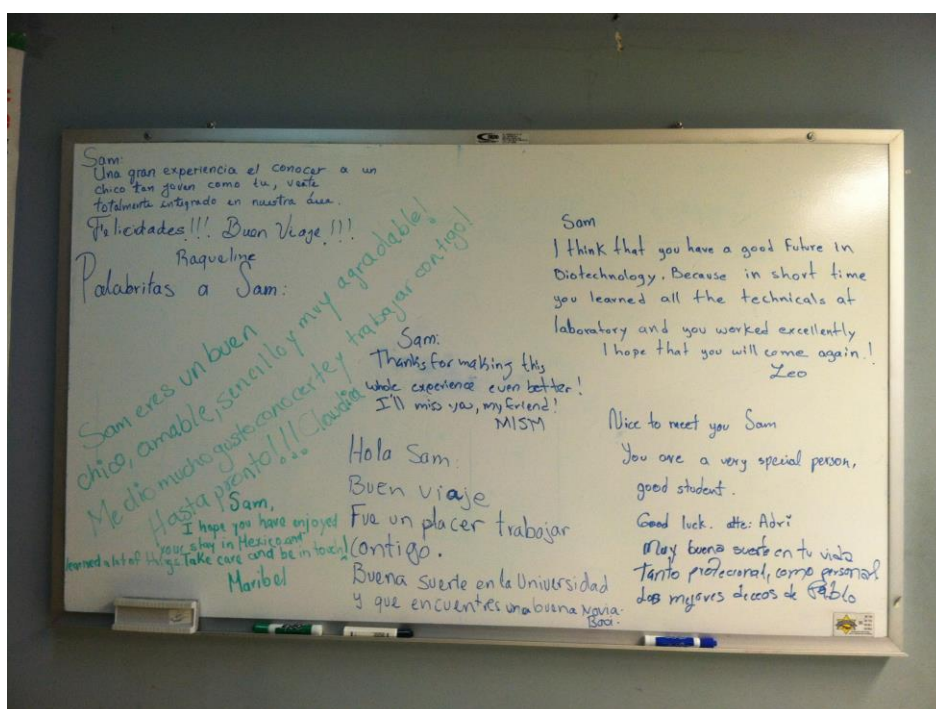 Sam:
Una gran experiencia el conocer a un
chico tan joven como tu, verte
totalmente integrado en nuestra área.
Felicidades!!! Buen Viaje !!!
Raqueline
Palabritas a Sam:
Sam eres un buen
chico, amable, sencillo y muy agradable!
Me dio mucho gusto conocerte y trabajar contigo!
Hasta pronto!!! Claudia
Sam,
I hope you have enjoyed
your stay in Mexico and
learned a lot of things. Take care and be in touch!
Maribel
Sam:
Thanks for making this
whole experience even better!
I'll miss you, my friend!
MISM
Hola Sam:
Buen viaje
Fue un placer trabajar
contigo.
Buena suerte en la Universidad
y que encuentres una buena novia.
Sam
I think that you have a good Future In
Biotechnology. Because in short time
you learned all the technicals at
laboratory and you worked excellently
I hope that you will come again.!
Leo
Nice to meet you Sam
You are a very special person,
good student.
Good luck. atte: Adri
Muy buena suerte en tu vida
Tanto profecional, como personal
Los mejores deceos de Pablo